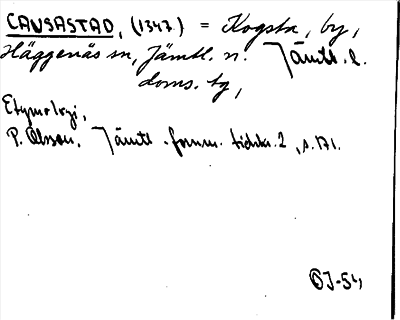 CAUSASTAD, (1347.) = Kogsta, by,
Häggenås sn, Jämtl. n. Jämtl. l.
doms. tg,
Etymologi,
P. Olsson, Jämtl. fornm. tidskr. 2, s. 171.
OJ-54